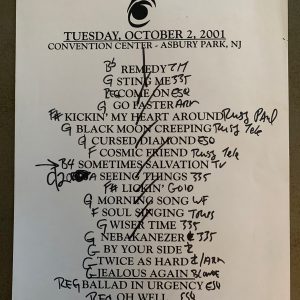 TUESDAY, OCTOBER 2, 2001
CONVENTION CENTER - ASBURY PARK, NJ
REMEDY
G STING ME 335
COME ON
G GO FASTER
F# KICKIN' MY HEART AROUND
G BLACK MOON CREEPING
G CURSED DIAMOND
F COSMIC FRIEND
SOMETIMES SALVATION
SEEING THINGS 335
F# LICKIN'
G MORNING SONG
F SOUL SINGING
G WISER TIME 335
G NEBAKANEZER 335
G BY YOUR SIDE
G TWICE AS HARD
G JEALOUS AGAIN
REG BALLAD IN URGENCY
REG OH WELL